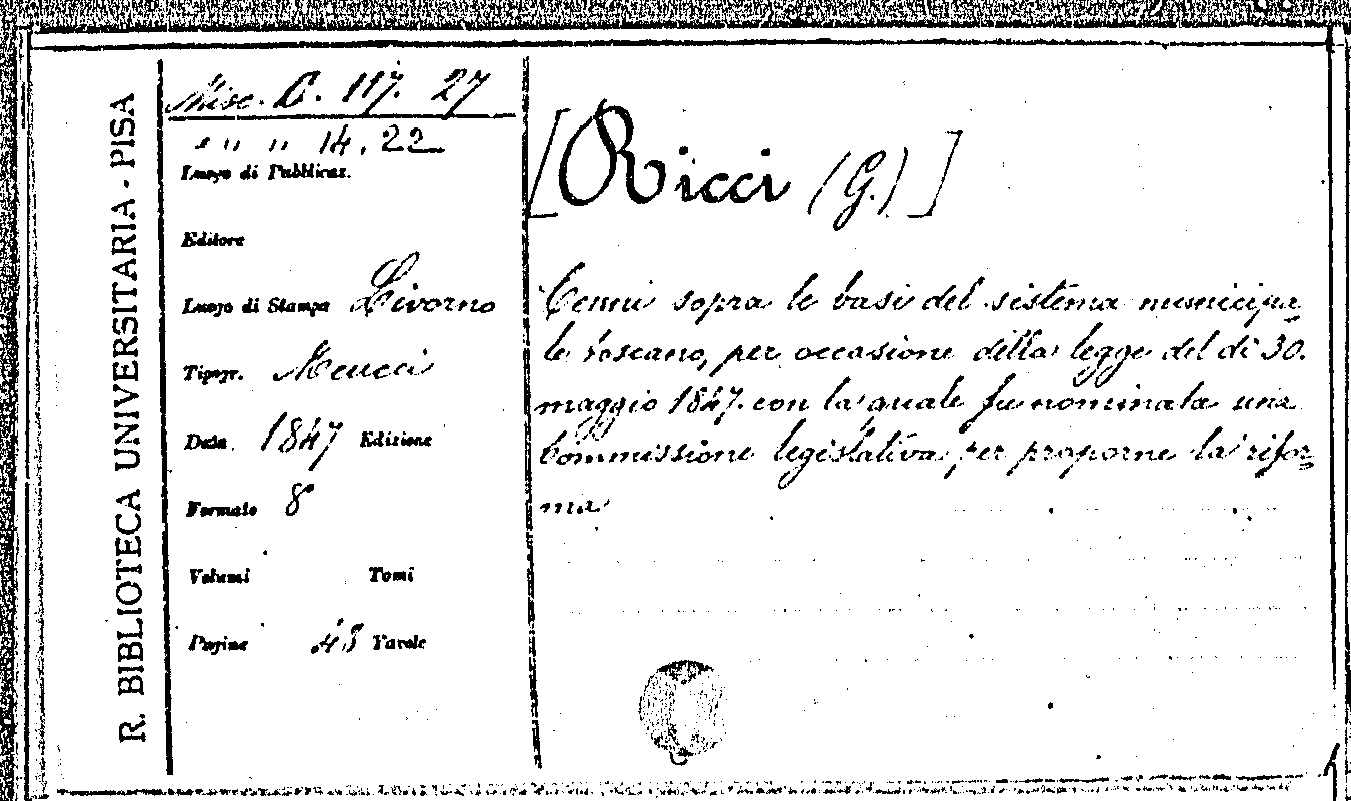 R. BIBLIOTECA UNIVERSITARIA - PISA
Misc. C. 117. 27
" " " 14. 22
Luogo di Pubblicaz.
Editore
Luogo di Stampa Livorno
Tipogr. Meucci
Data 1847 Edizione
Formato 8
Volumi Tomi
Pagine 48 Tavole
[Ricci (G.)]
Cenni sopra le basi del sistema municipa-
le toscano, per occasione della legge del dì 30.
maggio 1847. con la quale fu nominata una
Commissione legislativa per proporne la rifor-
ma